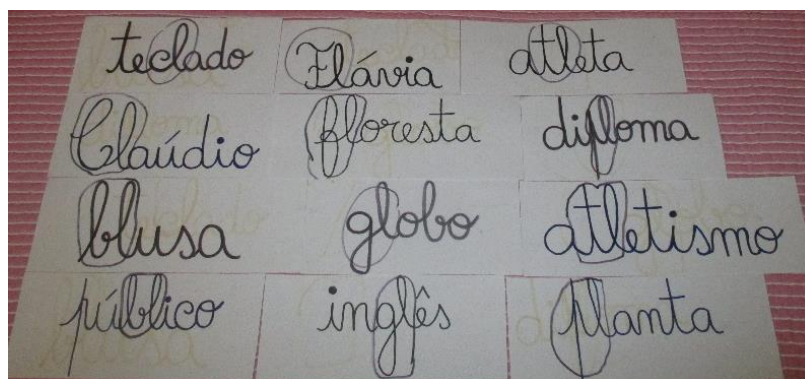 teclado Flávia atleta
Claúdio floresta diploma
blusa globo atletismo
público inglês planta